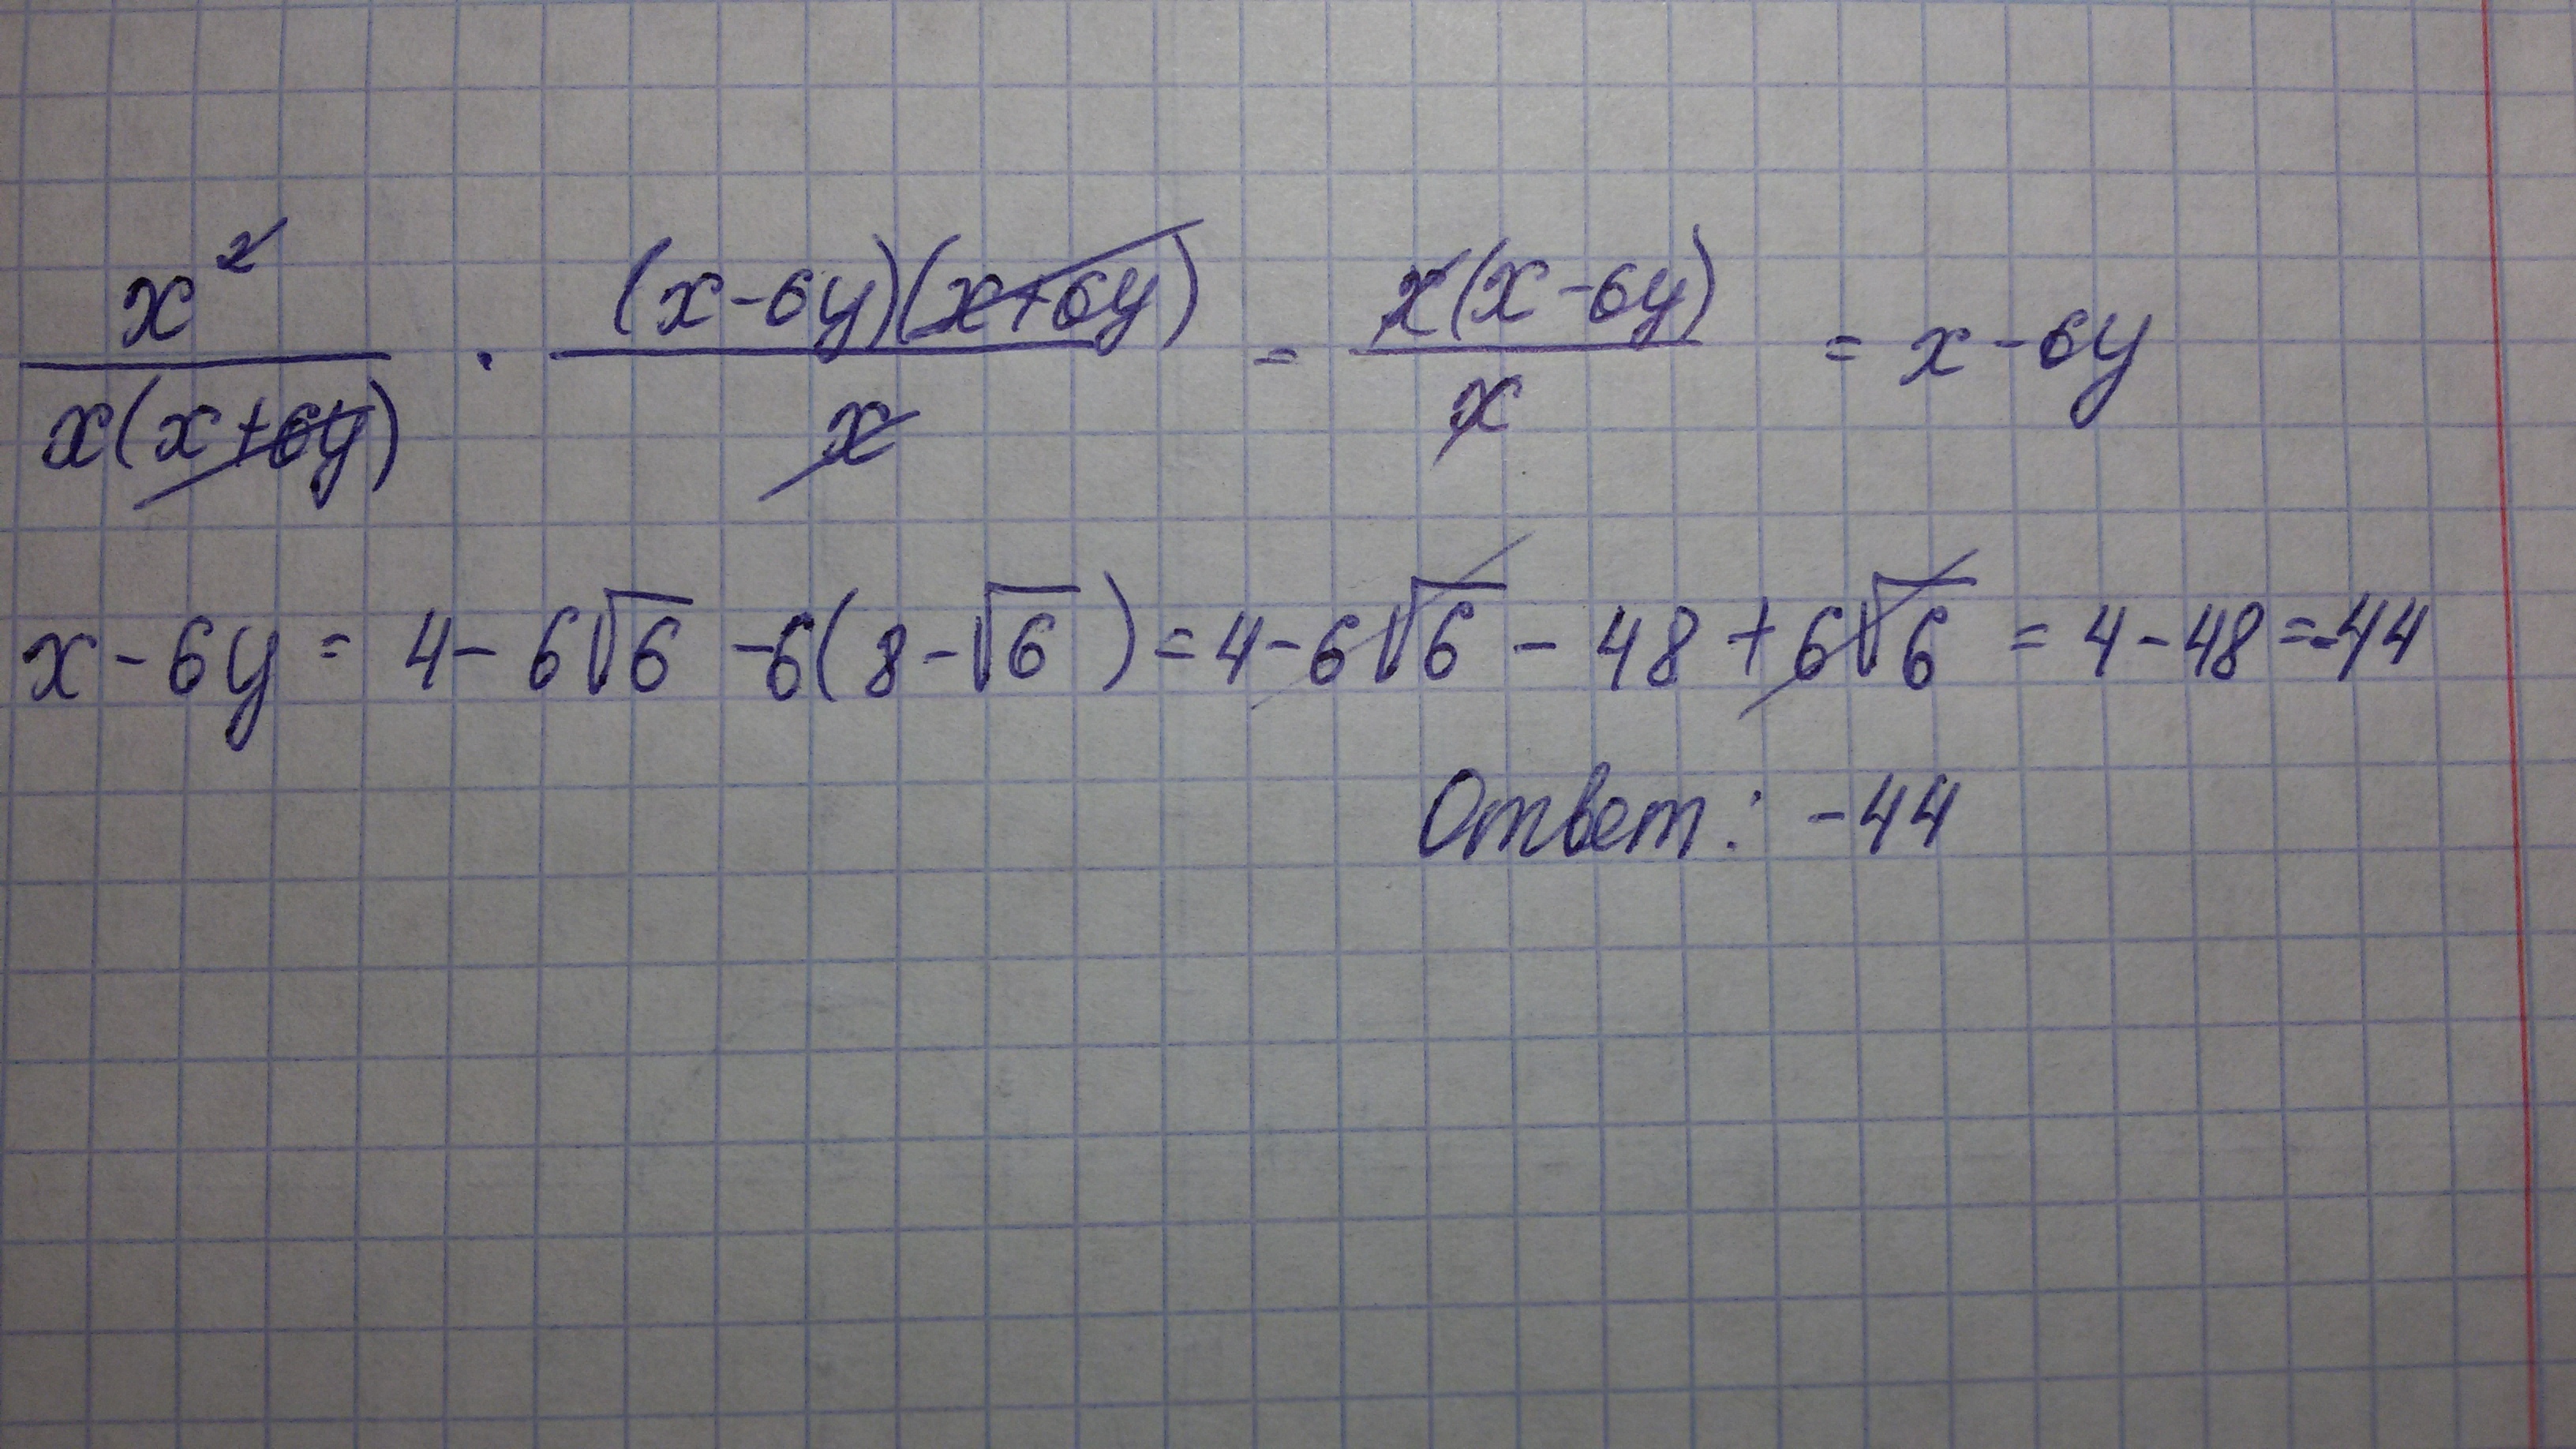 x²/x(x+6y) · (x-6y)(x+6y)/x = x(x-6y)/x = x-6y
x-6y = 4-6√6 -6(8-√6) = 4-6√6 - 48 + 6√6 = 4-48=-44
Ответ: -44